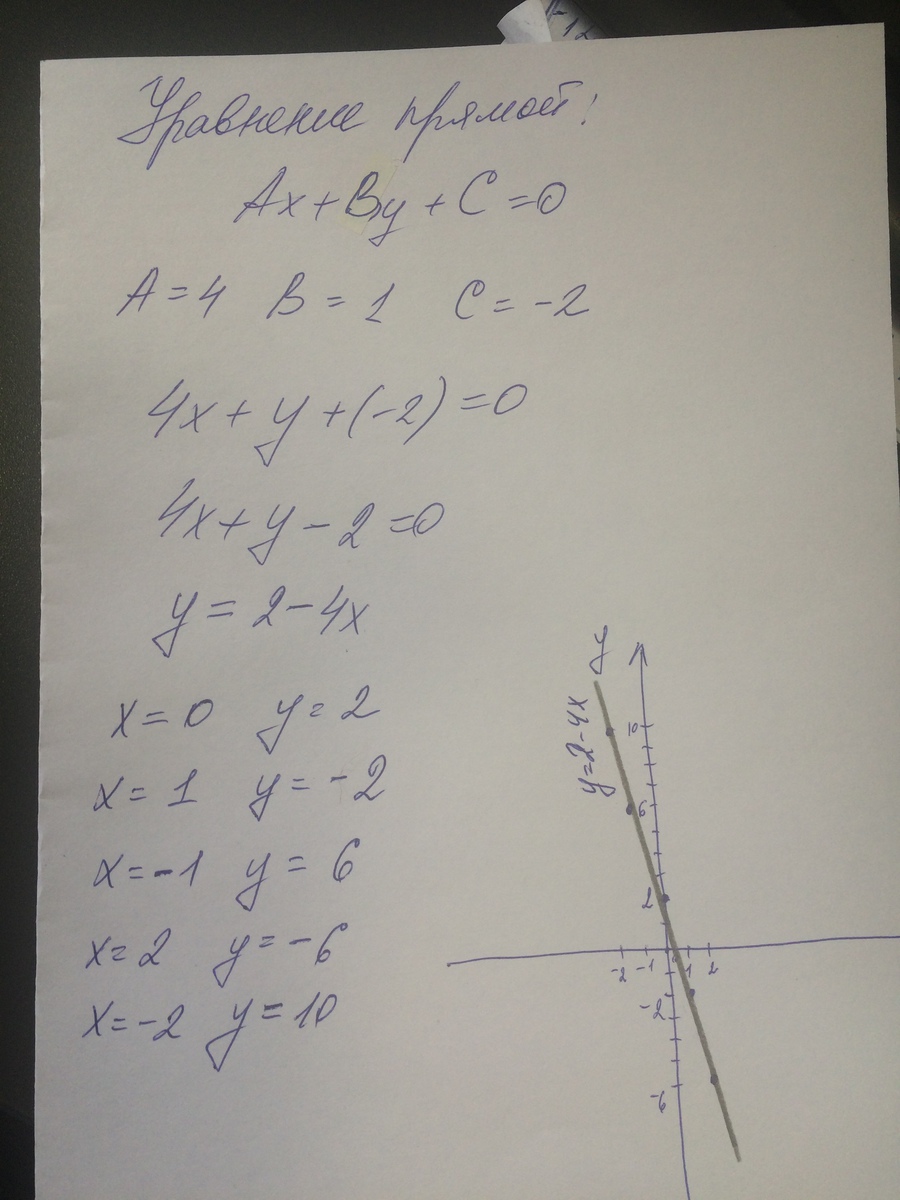 Уравнение прямой:
Ax + By + C = 0
A = 4 B = 1 C = -2
4x + y + (-2) = 0
4x + y - 2 = 0
y = 2 - 4x
x = 0 y = 2
x = 1 y = -2
x = -1 y = 6
x = 2 y = -6
x = -2 y = 10
y
y = 2 - 4x
10
6
2
-2 -1 1 2
-2
-6